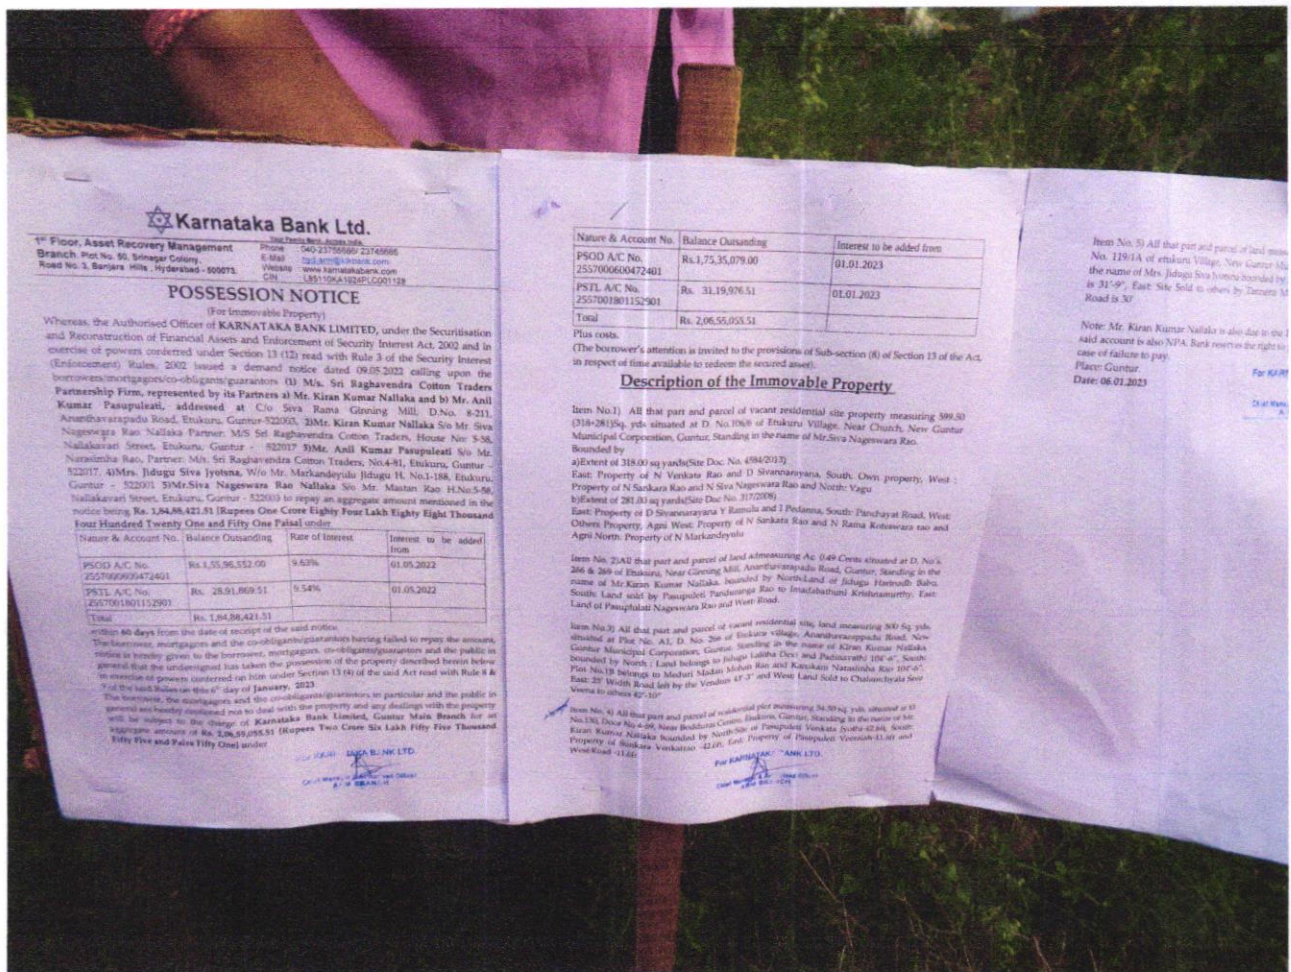 Karnataka Bank Ltd.
Your Family Bank. Across India.
1st Floor, Asset Recovery Management
Branch, Plot No. 50, Srinagar Colony,
Road No. 3, Banjara Hills, Hyderabad - 500073.
Phone : 040-23755686/ 23745686
E-Mail :
Website : www.karnatakabank.com
CIN : L85110KA1924PLC001128
POSSESSION NOTICE
(For Immovable Property)
Whereas, the Authorised Officer of KARNATAKA BANK LIMITED, under the Securitisation
and Reconstruction of Financial Assets and Enforcement of Security Interest Act, 2002 and in
exercise of powers conferred under Section 13 (12) read with Rule 3 of the Security Interest
(Enforcement) Rules, 2002 issued a demand notice dated 09.05.2022 calling upon the
borrowers/mortgagors/co-obligants/guarantors (1) M/s. Sri Raghavendra Cotton Traders
Partnership Firm, represented by its Partners a) Mr. Kiran Kumar Nallaka and b) Mr. Anil
Kumar Pasupuleti, addressed at C/o Siva Rama Ginning Mill, D.No. 8-211,
Ananthavarapadu Road, Etukuru, Guntur-522003, 2)Mr. Kiran Kumar Nallaka S/o Mr. Siva
Nageswara Rao Nallaka Partner: M/S Sri Raghavendra Cotton Traders, House No: 5-58,
Nallakavari Street, Etukuru, Guntur - 522017 3)Mr. Anil Kumar Pasupuleti S/o Mr.
Narasimha Rao, Partner: M/s. Sri Raghavendra Cotton Traders, No.4-81, Etukuru, Guntur -
522017, 4)Mrs. Jidugu Siva Jyotsna, W/o Mr. Markandeyulu Jidugu H. No.1-188, Etukuru,
Guntur - 522001 5)Mr.Siva Nageswara Rao Nallaka S/o Mr. Mastan Rao H.No.5-58,
Nallakavari Street, Etukuru, Guntur - 522003 to repay an aggregate amount mentioned in the
notice being Rs. 1,84,88,421.51 [Rupees One Crore Eighty Four Lakh Eighty Eight Thousand
Four Hundred Twenty One and Fifty One Paisa] under
Nature & Account No. Balance Outsanding Rate of Interest Interest to be added from
PSOD A/C No. 2557000600472401 Rs.1,55,96,552.00 9.63% 01.05.2022
PSTL A/C No. 2557001801152901 Rs. 28,91,869.51 9.54% 01.05.2022
Total Rs. 1,84,88,421.51
within 60 days from the date of receipt of the said notice.
The borrower, mortgagors and the co-obligants/guarantors having failed to repay the amount,
notice is hereby given to the borrower, mortgagors, co-obligants/guarantors and the public in
general that the undersigned has taken the possession of the property described herein below
in exercise of powers conferred on him under Section 13 (4) of the said Act read with Rule 8 &
9 of the said Rules on this 6th day of January, 2023.
The borrower, the mortgagors and the co-obligants/guarantors in particular and the public in
general are hereby cautioned not to deal with the property and any dealings with the property
will be subject to the charge of Karnataka Bank Limited, Guntur Main Branch for an
aggregate amount of Rs. 2,06,55,055.51 (Rupees Two Crore Six Lakh Fifty Five Thousand
Fifty Five and Paisa Fifty One) under
BANK LTD.
Nature & Account No. Balance Outsanding Interest to be added from
PSOD A/C No. 2557000600472401 Rs.1,75,35,079.00 01.01.2023
PSTL A/C No. 2557001801152901 Rs. 31,19,976.51 01.01.2023
Total Rs. 2,06,55,055.51
Plus costs.
(The borrower's attention is invited to the provisions of Sub-section (8) of Section 13 of the Act,
in respect of time available to redeem the secured asset).
Description of the Immovable Property
Item No.1) All that part and parcel of vacant residential site property measuring 599.50
(318+281)Sq. yds situated at D. No.106/6 of Etukuru Village, Near Church, New Guntur
Municipal Corporation, Guntur, Standing in the name of Mr.Siva Nageswara Rao.
Bounded by
a)Extent of 318.00 sq yards(Site Doc. No. 4584/2013)
East: Property of N Venkata Rao and D Sivannarayana, South. Own property, West :
Property of N Sankara Rao and N Siva Nageswara Rao and North: Vagu
b)Extent of 281.00 sq yards(Site Doc No. 317/2008)
East: Property of D Sivannarayana Y Ramulu and I Pedanna, South: Panchayat Road, West:
Others Property, Agni West: Property of N Sankara Rao and N Rama Koteswara rao and
Agni North: Property of N Markandeyulu
Item No. 2)All that part and parcel of land admeasuring Ac. 0.49 Cents situated at D. No's.
266 & 269 of Etukuru, Near Ginning Mill, Ananthavarapadu Road, Guntur, Standing in the
name of Mr.Kiran Kumar Nallaka. bounded by North:Land of Jidugu Harinadh Babu,
South: Land sold by Pasupuleti Panduranga Rao to Imadabathuni Krishnamurthy, East:
Land of Pasupulati Nageswara Rao and West: Road.
Item No.3) All that part and parcel of vacant residential site, land measuring 500 Sq. yds,
situated at Plot No. A1, D. No. 266 of Etukuru village, Ananthavarappadu Road, New
Guntur Municipal Corporation, Guntur, Standing in the name of Kiran Kumar Nallaka
bounded by North : Land belongs to Jidugu Lalitha Devi and Padmavathi 104'-6", South:
Plot No.1B belongs to Meduri Madan Mohan Rao and Karukam Narasimha Rao 104'-6",
East: 25' Width Road left by the Vendors 43'-3" and West: Land Sold to Seer
Veena to others 42'-10"
Item No. 4) All that part and parcel of residential plot measuring 54.50 sq. yds, situated at D
No.130, Door No.4-69, Near Boddurai Centre, Etukuru, Guntur, Standing in the name of Mr.
Kiran Kumar Nallaka bounded by North:Site of Pasupuleti Venkata Jyothi South:
Property of Sankara Venkatrao East: Property of Pasupuleti Veeraiah and
West:Road
For KARNATAKA BANK LTD.
Item No. 5) All that part and parcel of land meas
No. 119/1A of etukuru Village, New Guntur Mu
the name of Mrs. Jidugu Siva Jyotsna bounded by
is 31'-9", East: Site Sold to others by M
Road is 30'
Note: Mr. Kiran Kumar Nallaka is also due to the
said account is also NPA. Bank reserves the right to
case of failure to pay.
Place: Guntur.
Date: 06.01.2023
For KARN